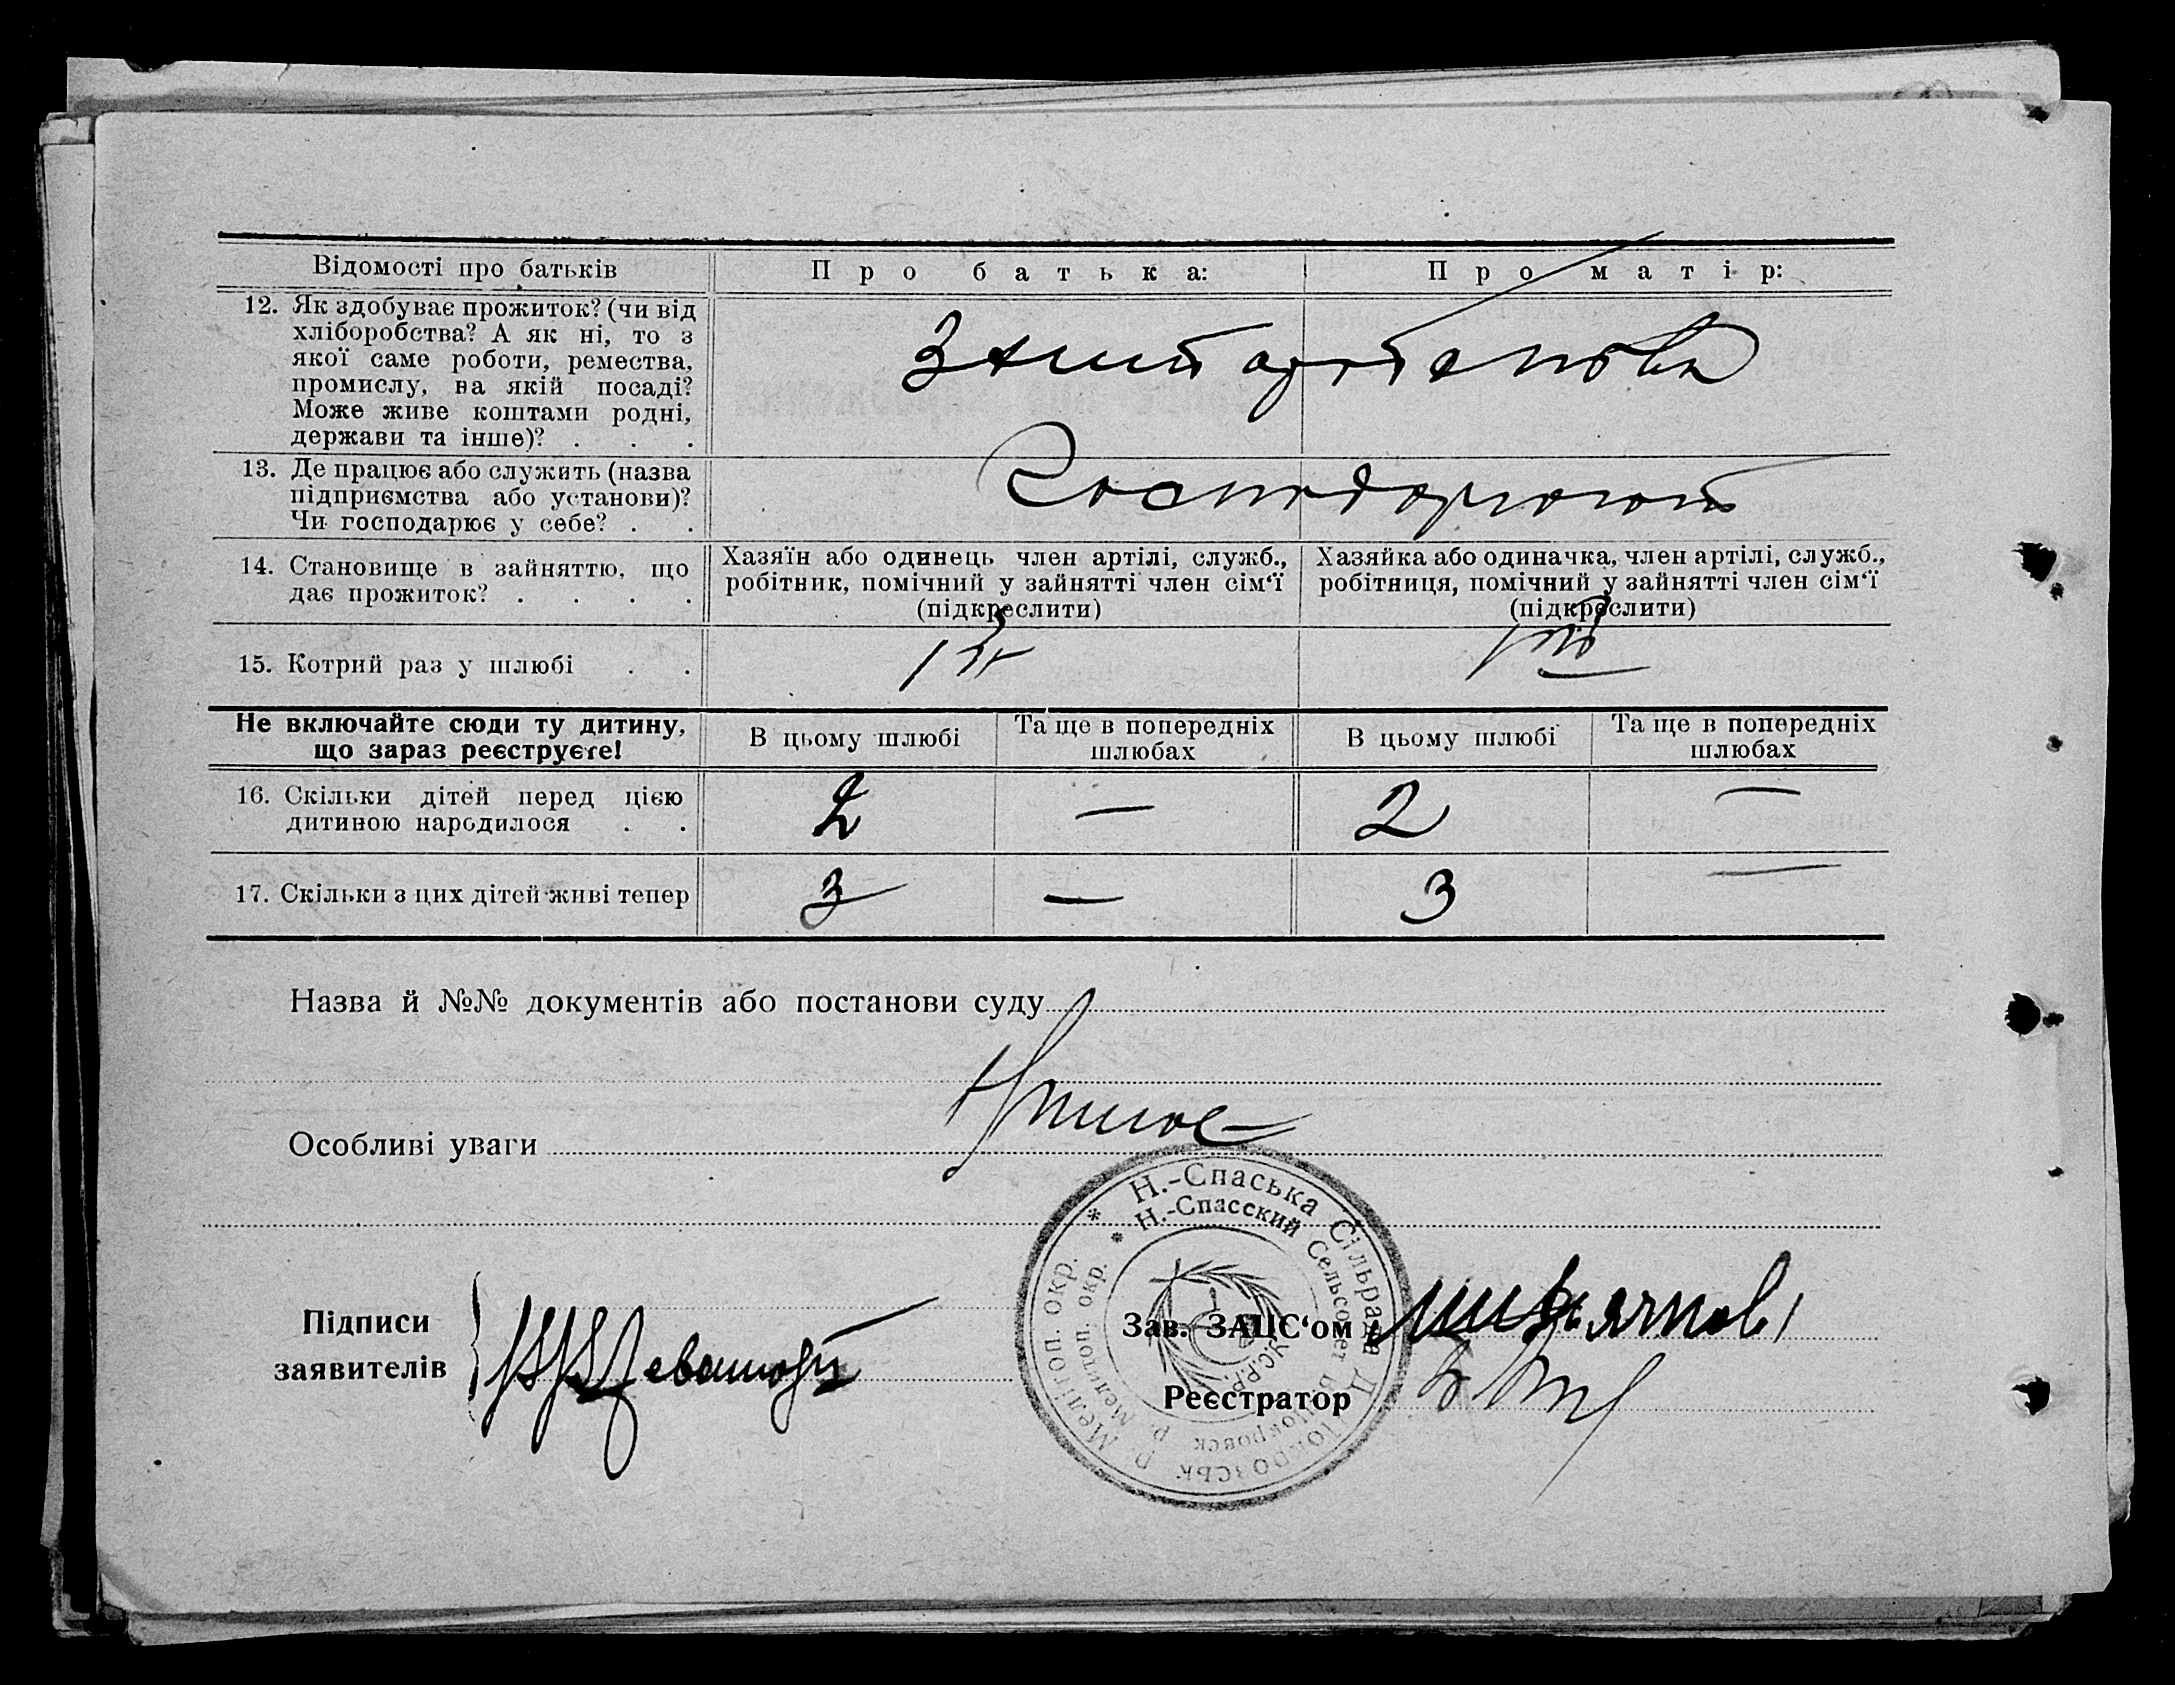 Відомості про батьків
Про батька:
Про матір:
12. Як здобуває прожиток? (чи від
хліборобства? А як ні, то з
якої саме роботи, ремества,
промислу, на якій посаді?
Може живе коштами родні,
держави та інше)? . . .
13. Де працює або служить (назва
підприємства або установи)?
Чи господарює у себе? . .
Господарюють
14. Становище в зайняттю, що
дає прожиток? . . . .
Хазяїн або одинець член артілі, служб.,
робітник, помічний у зайнятті член сім‘ї
(підкреслити)
Хазяйка або одиначка, член артілі, служб.,
робітниця, помічний у зайнятті член сім‘ї
(підкреслити)
15. Котрий раз у шлюбі . .
Не включайте сюди ту дитину,
що зараз реєструєте!
В цьому шлюбі
Та ще в попередніх
шлюбах
В цьому шлюбі
Та ще в попередніх
шлюбах
16. Скільки дітей перед цією
дитиною народилося . .
2 — 2 —
17. Скільки з цих дітей живі тепер
3 — 3 —
Назва й №№ документів або постанови суду
Особливі уваги
Н.-Спаська Сільрада
Н.-Спасский Сельсовет
р. Меліт​оп. окр.
р. Мелитоп. окр.
Підписи
заявителів
Зав. ЗАЦС‘ом
Реєстратор